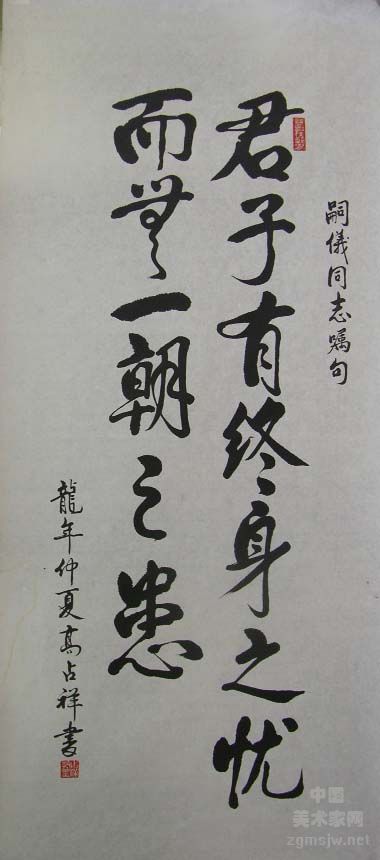 嗣儀同志嘱句
君子有终身之忧
而無一朝之患
龍年仲夏高占祥書
中国
美术家网
zgmsjw.net